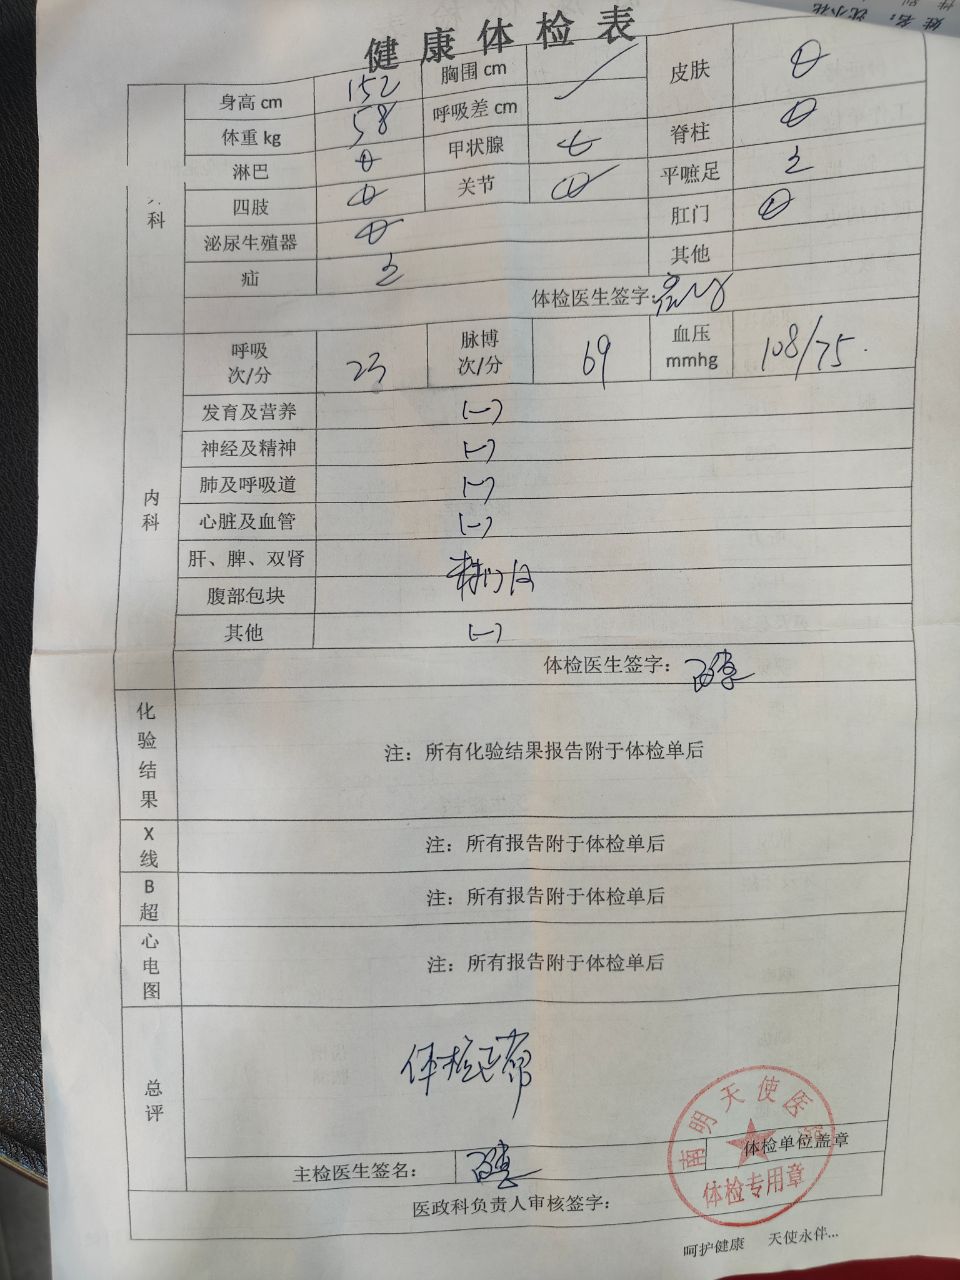 姓名：沈小花
性别
健康体检表
外科
身高 cm 152 胸围 cm 皮肤
体重 kg 58 呼吸差 cm
淋巴 甲状腺 脊柱
四肢 关节 平蹠足
泌尿生殖器 肛门
疝 其他
体检医生签字：
内科
呼吸 次/分 23 脉博 次/分 69 血压 mmhg 108/75.
发育及营养 (—)
神经及精神 (—)
肺及呼吸道 (—)
心脏及血管 (—)
肝、脾、双肾
腹部包块
其他 (—)
体检医生签字：
化验结果
注：所有化验结果报告附于体检单后
X线
注：所有报告附于体检单后
B超
注：所有报告附于体检单后
心电图
注：所有报告附于体检单后
总评
体检正常
南明天使医
体检单位盖章
体检专用章
主检医生签名：
医政科负责人审核签字：
呵护健康 天使永伴...